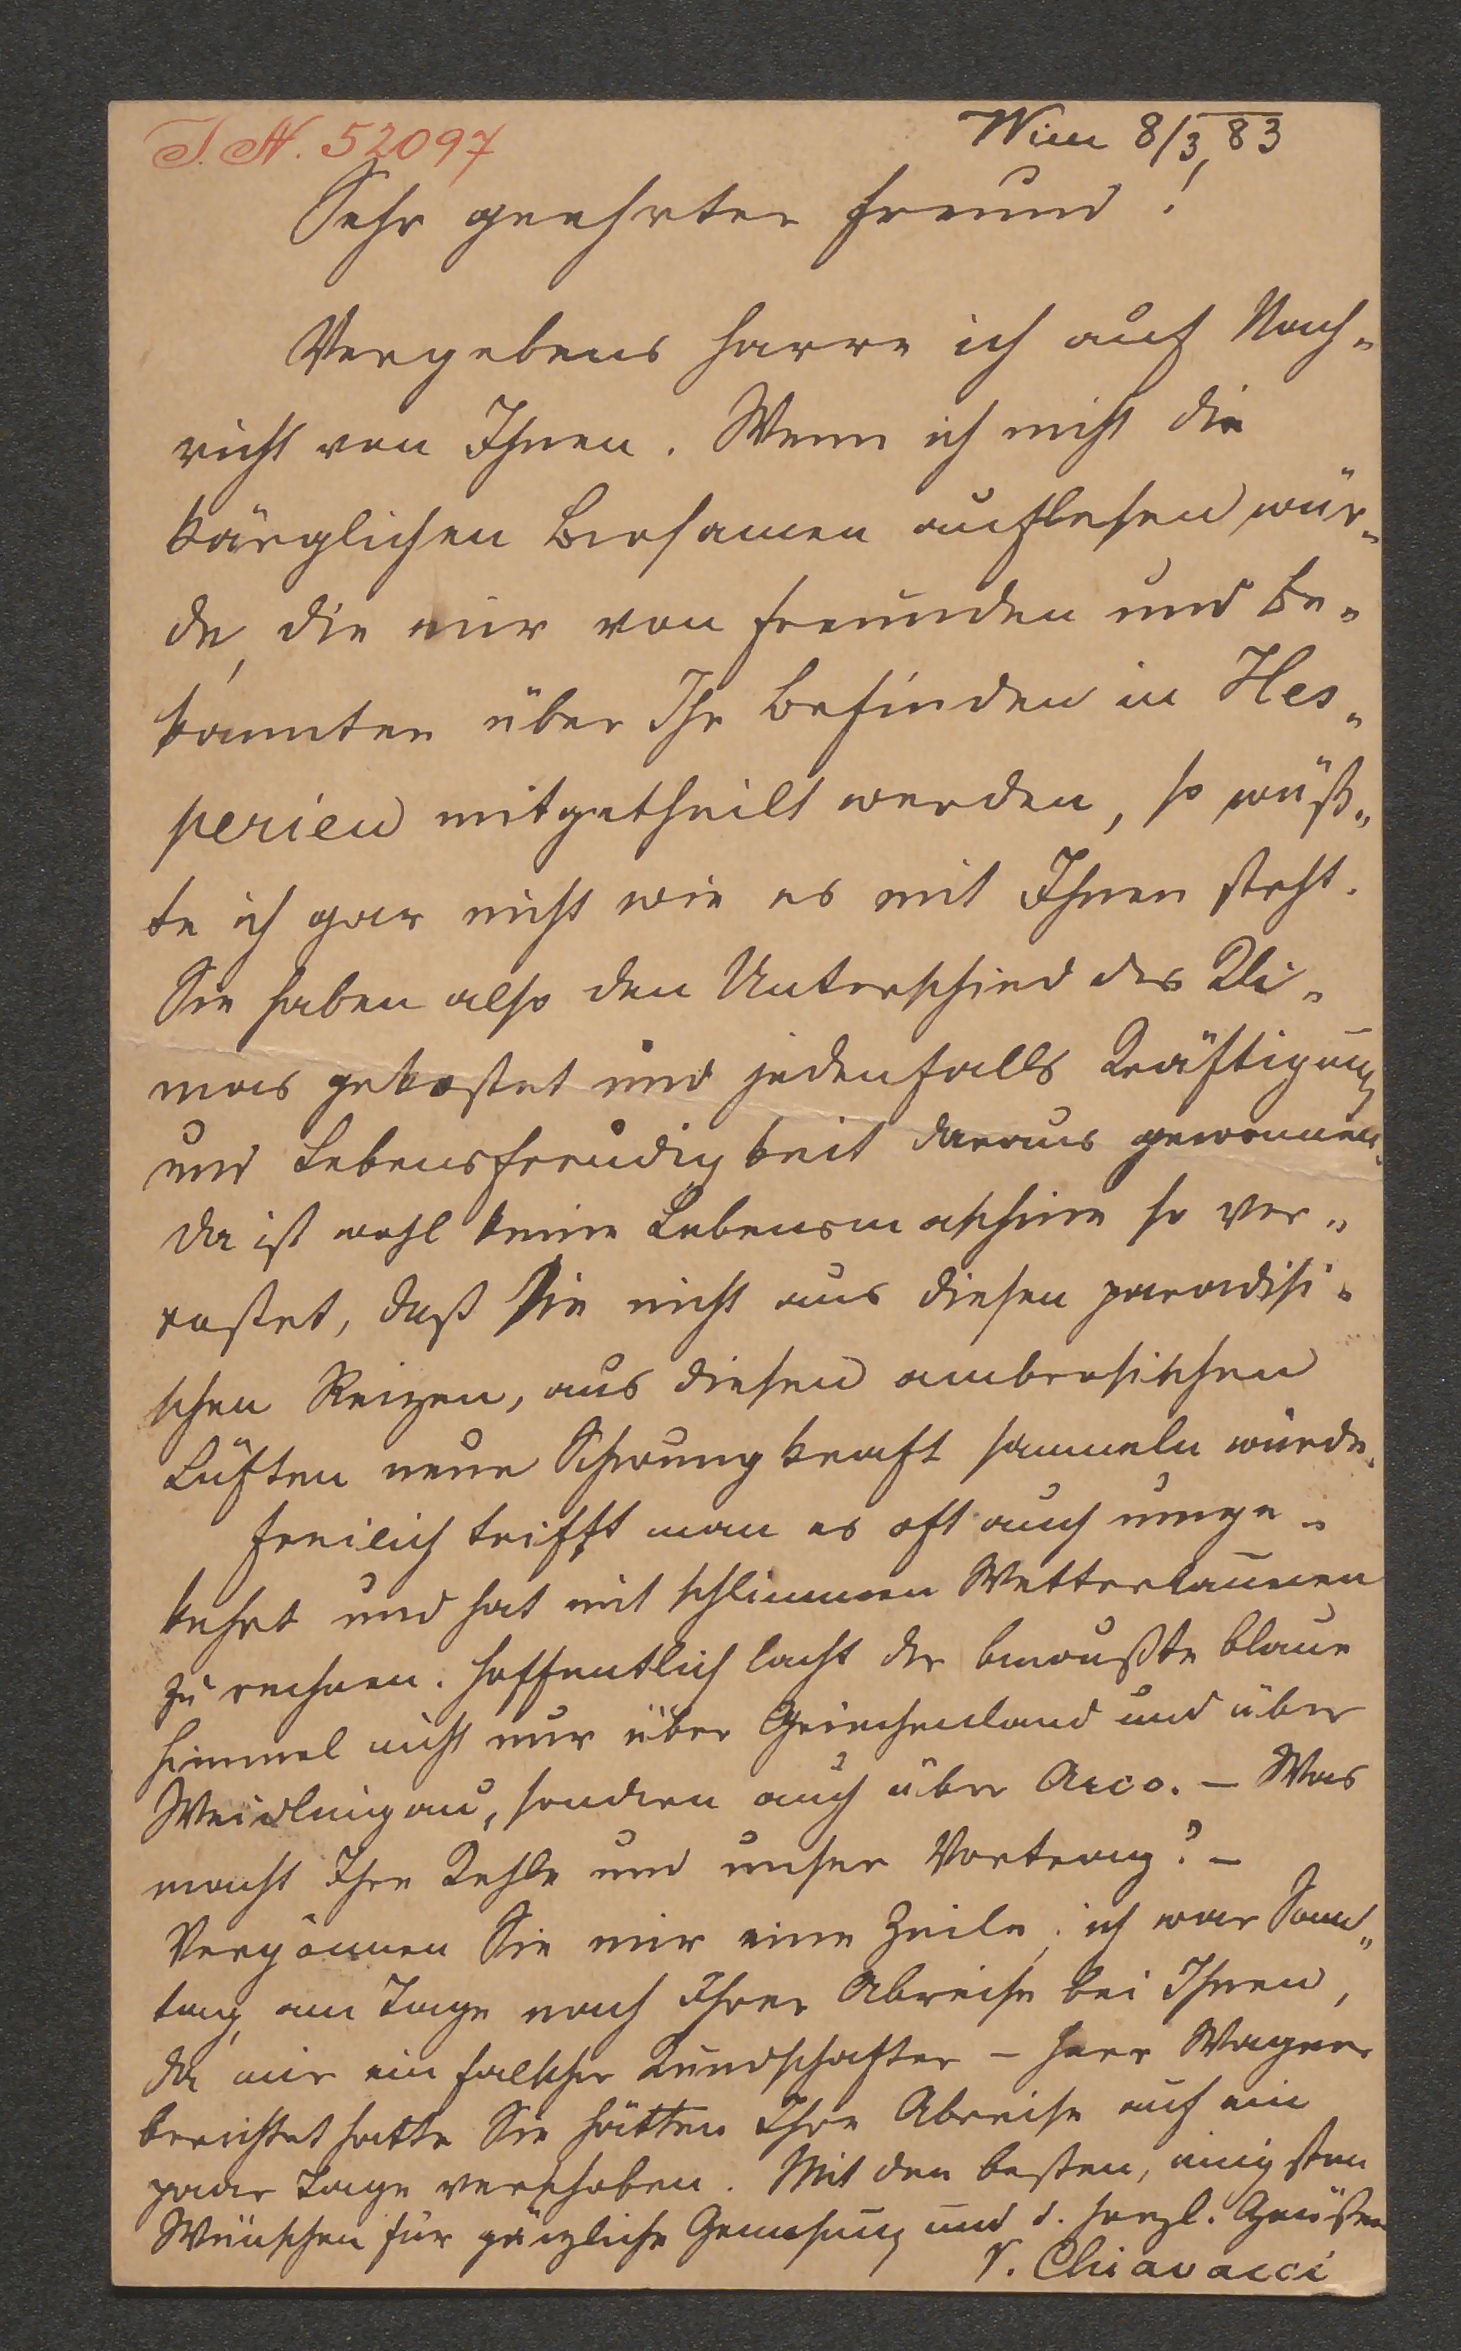 I. N. 52097
Wien 8/3, 83
Sehr geehrter Freund!
Vergebens harre ich auf Nach-
richt von Ihnen. Wenn ich nicht die
kärglichen Brosamen auflesen wür-
de, die mir von Freunden und Be-
kannten über Ihr Befinden in Hes-
perien mitgetheilt werden, so wüß-
te ich gar nicht wie es mit Ihnen steht.
Sie haben also den Unterschied des Kli-
mas gekostet und jedenfalls Kräftigung
und Lebensfreudigkeit daraus gewonnen.
Da ist wohl keine Lebensmaschine so ver-
rostet, daß Sie nicht aus diesen paradisi-
schen Reizen, aus diesen ambrosischen
Lüften neue Schwungkraft sammeln würde.
Freilich trifft man es oft auch umge-
kehrt und hat mit schlimmen Wetterlaunen
zu rechnen. Hoffentlich lacht der bewußte blaue
Himmel nicht nur über Griechenland und über
Weidlingau, sondern auch über Arco. – Was
macht Ihre Kehle und unser Vortrag? –
Vergönnen Sie mir eine Zeile; ich war Sonn-
tag, am Tage nach Ihrer Abreise bei Ihnen,
da mir ein falscher Kundschafter – Herr Wagner
berichtet hatte Sie hätten Ihre Abreise auf ein
paar Tage verschoben. Mit den besten, innigsten
Wünschen für gänzliche Genesung und d. herzl. Grüßen
V. Chiavacci